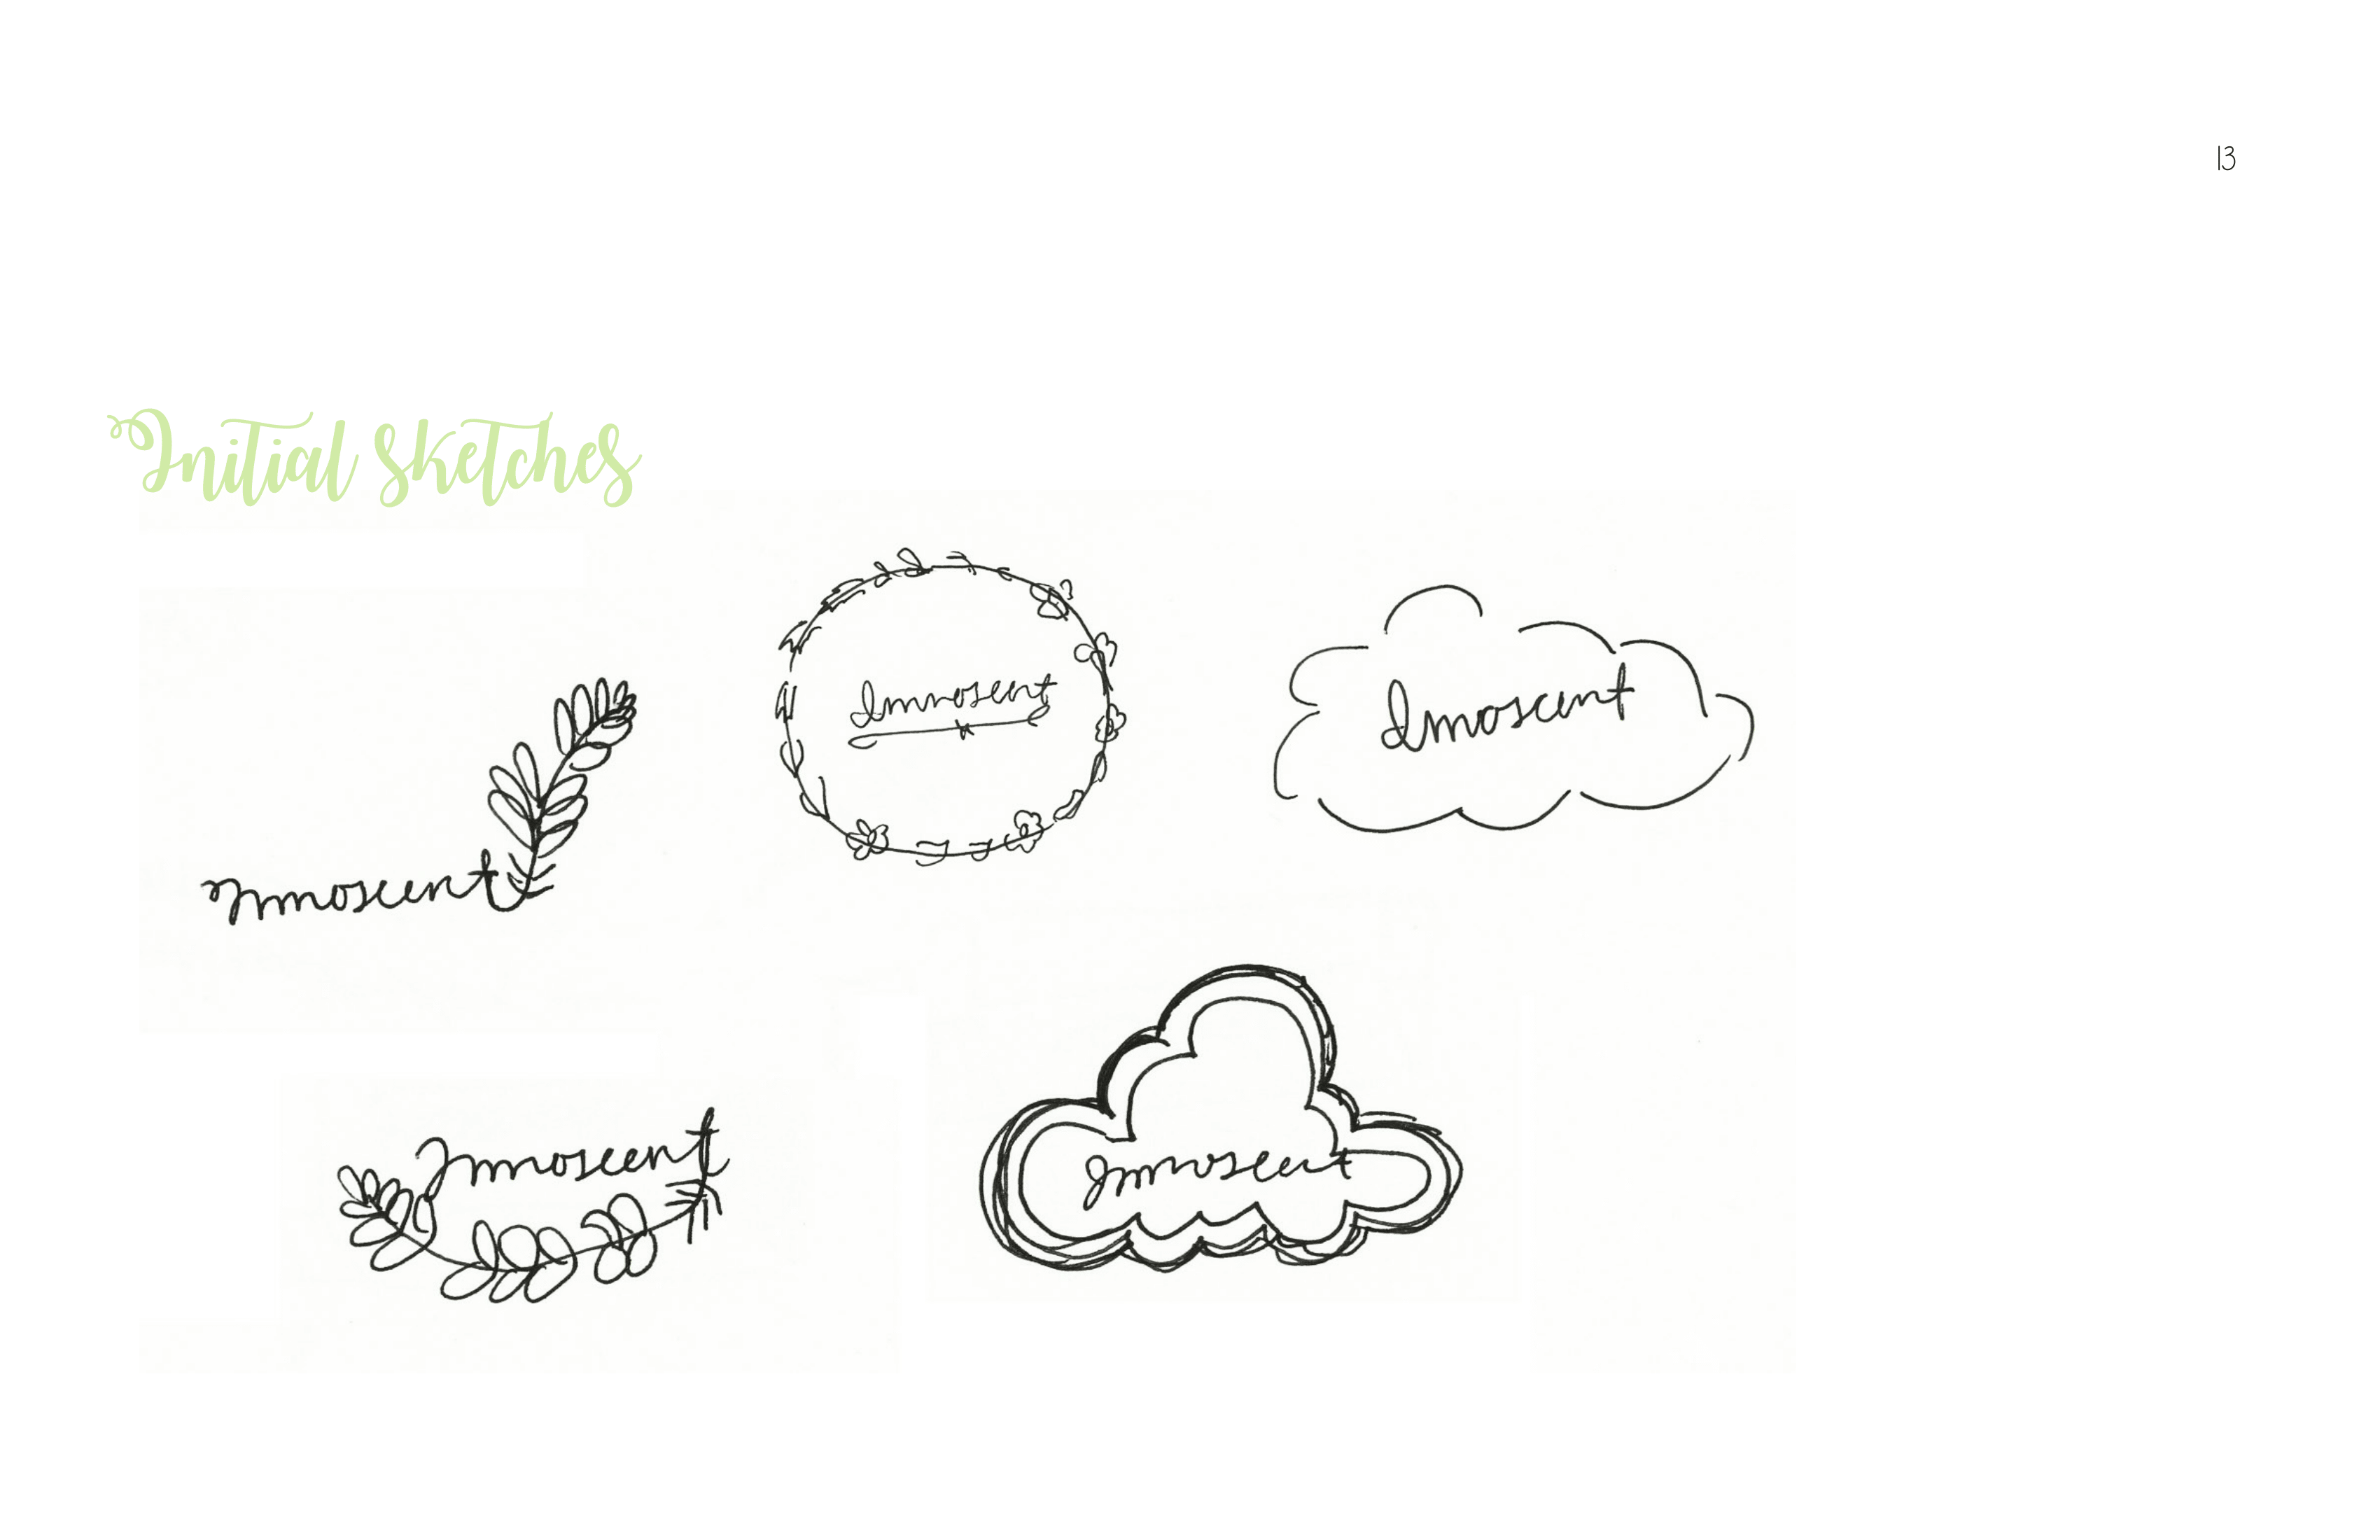 13
Initial Sketches
Innoscent
Innoscent
Innoscent
Innoscent
Innoscent